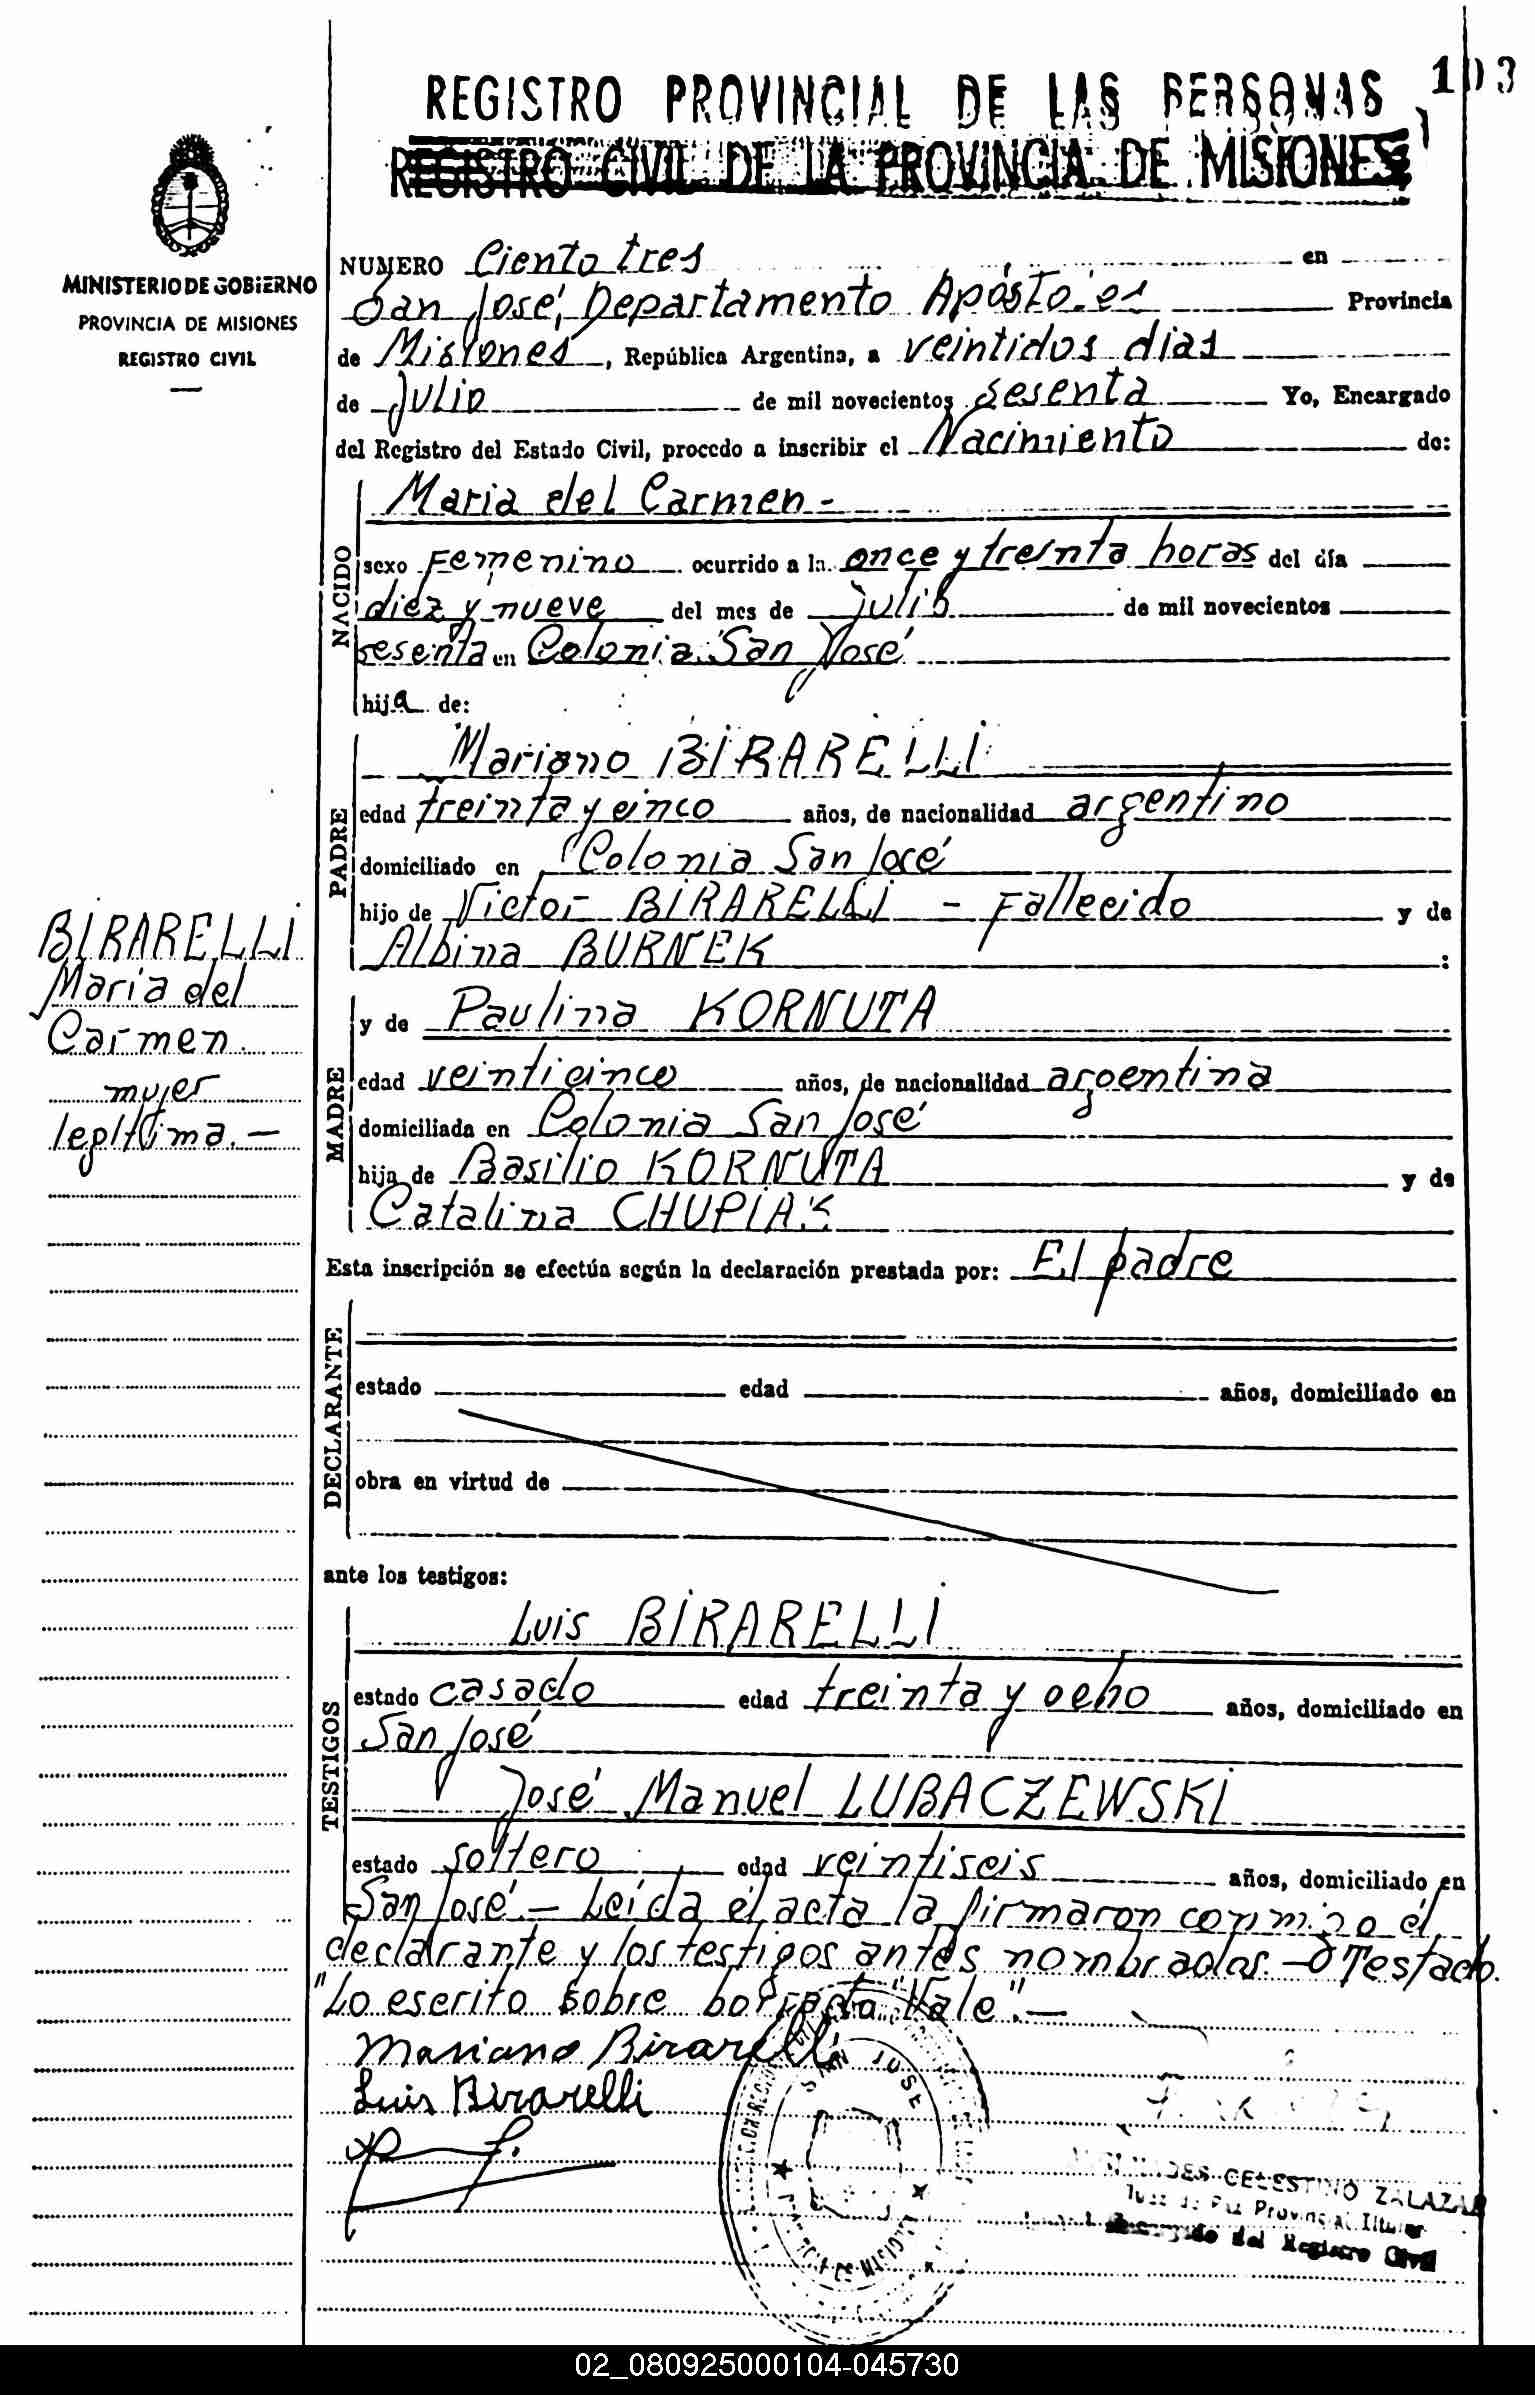 103
REGISTRO PROVINCIAL DE LAS PERSONAS
REGISTRO CIVIL DE LA PROVINCIA DE MISIONES
MINISTERIO DE GOBIERNO
PROVINCIA DE MISIONES
REGISTRO CIVIL
NUMERO Ciento tres en
San José, Departamento Apóstoles Provincia
de Misiones, República Argentina, a veintidos dias
de Julio de mil novecientos sesenta Yo, Encargado
del Registro del Estado Civil, procedo a inscribir el Nacimiento de:
NACIDO
Maria del Carmen -
sexo Femenino ocurrido a la once y treinta horas del día
diez y nueve del mes de julio de mil novecientos
sesenta en Colonia San José
hija de:
PADRE
Mariano BIRARELLI
edad treinta y cinco años, de nacionalidad argentino
domiciliado en Colonia San José
hijo de Victor BIRARELLI - Fallecido y de
Albina BURNEK :
BIRARELLI
Maria del
Carmen.
mujer
legitima. -
MADRE
y de Paulina KORNUTA
edad veinticinco años, de nacionalidad argentina
domiciliada en Colonia San José
hija de Basilio KORNUTA y de
Catalina CHUPIAK
Esta inscripción se efectúa según la declaración prestada por: El padre
DECLARANTE
estado edad años, domiciliado en
obra en virtud de
ante los testigos:
TESTIGOS
Luis BIRARELLI
estado casado edad treinta y ocho años, domiciliado en
San José
José Manuel LUBACZEWSKI
estado soltero edad veintiseis años, domiciliado en
San José. - Leída el acta la firmaron conmigo él
declarante y los testigos antes nombrados. - Testado.
"Lo escrito sobre borrado "Vale". -
Mariano Birarelli
Luis Birarelli
SAN JOSE
CELESTINO ZALAZAR
Juez de Paz Provincial Titular
Encargado del Registro Civil
02_080925000104-045730